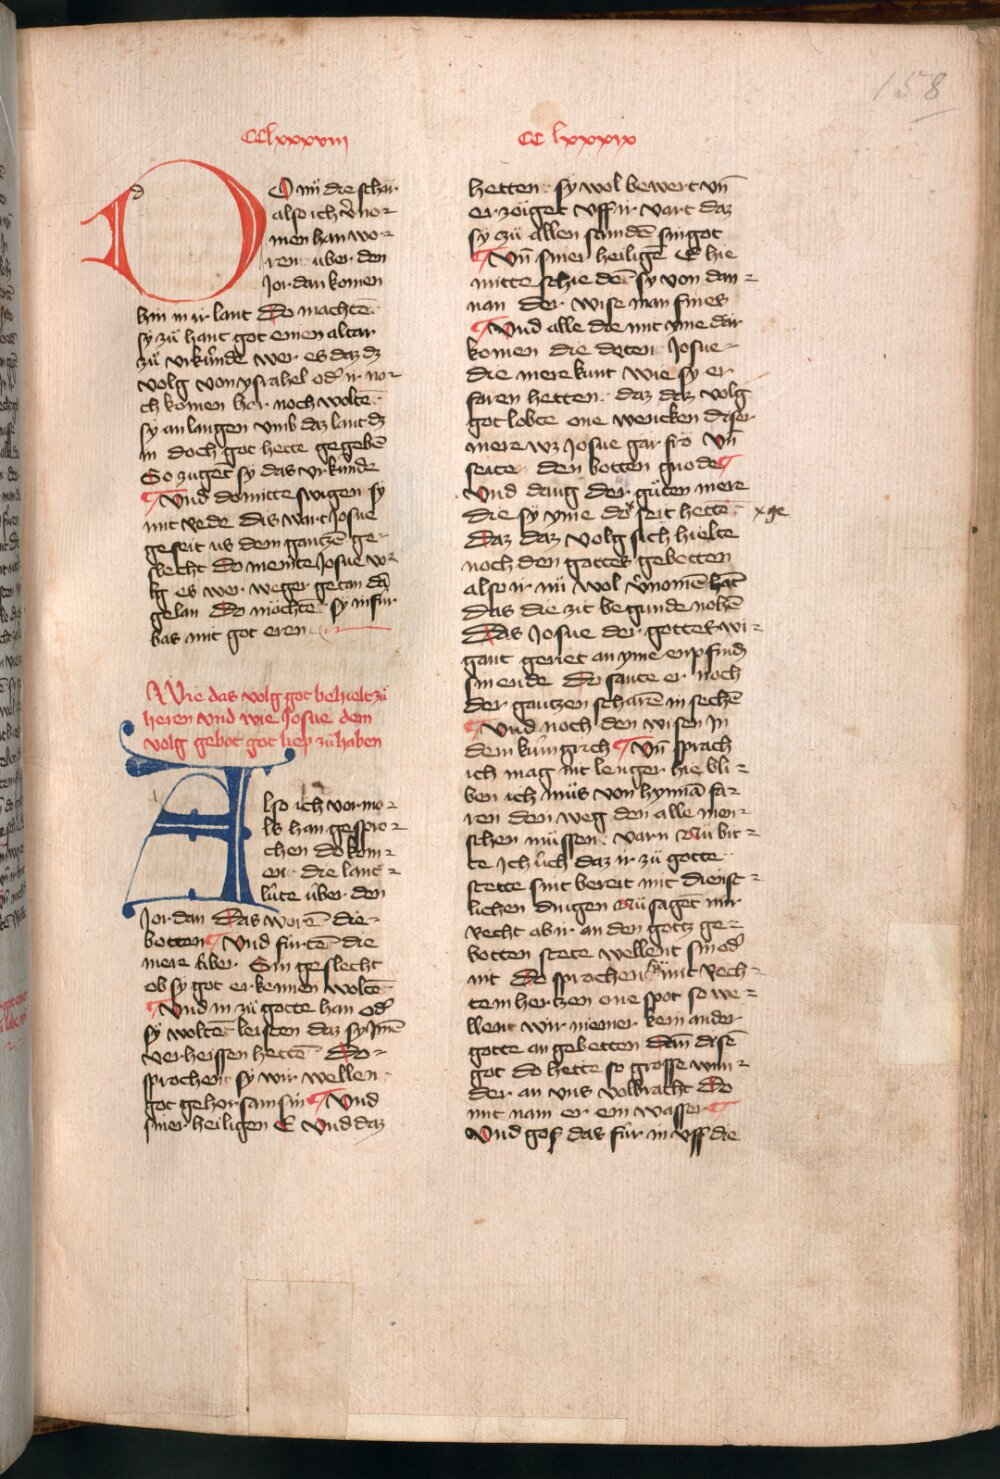 158
CClxxxviii
DO nü die schar
also ich v̾no-
men han wo-
ren über den
Jordan komen
hin in ir lant Do machtē
sy zü hant got einen altar
zü vrkünde wer es daz dz
volg von ysrahel od̾ ir no-
ch komen her noch woltē
sy an langen vmb daz lant dz
in doch got hette gegebē
So zugēt sy das vrkünde
Vnd do mitte swigen sy
mit rede Dis wart Josue
geseit us dem gantzēn ge-
slecht Do meinte Josue vo-
lg es wer weger getan dā
gelan Do möchtē sy in für
bas mit got eren
Wie das volg got behielt zü
heren vnd wie Josue dem
volg gebot got liep zü haben
Also ich vormo-
ls han gespro-
chen do kom-
en die lant-
lüte über den
Jordan Das worē die
botten Vnd fürtē die
mere über Sin geslecht
ob sy got erkennen woltē
Vnd in zü gotte han od̾
sy woltē leisten daz sy Jmē
verheissen hettē Do-
sprochent sy wir wellen
got gehorsam sin Vnd
siner heiligen E Vnd daz
CC lxxxix
hetten sy wol bewert vn̄
erzöiget vff ir vart daz
sy zü allen stundē sin got
Vn̄ siner heiligē E hie
mitte schiedēt sy von dan-
nan der wise man fines
Vnd alle die mit yme dar
komen die doten Josue
die mere kunt wie sy er
faren hetten daz daz volg
got lobte one wencken diser
mere wz Josue gar fro vn̄
seite den botten gnode
Vnd dang der güten mere
die sy yme do seit hette
Daz daz volg sich hielte
noch den gottes gebetten
also ir nü wol v̾nomē hāt
das die zit begunde nohē
Das Josue der gottes wi-
gant geriet an yme enpfindē
sin ende Do sante er noch
der gantzen scharē in sechē
Vnd noch den wisen In
dem künigrich Vn̄ sprach
ich mag nit lenger hie bli-
ben ich müs von hynnā fa-
ren den weg den alle men-
schen müssen varn Nü bit-
te Ich üch daz ir zü gotte
stette sint bereit mit dienst-
lichen dingen Nü sagēt mir
recht ab ir an den gotz ge-
botten stete wellent sin od̾
nit Do sprachen sy mit rech-
tem hertzen one spot so we-
llent wir niemer kein ander
gotte an gebetten Dan disē
got do hette so grosse wun-
der an vns volbracht Do
mit nam er ein wasser
Vnd gos das für in vff die